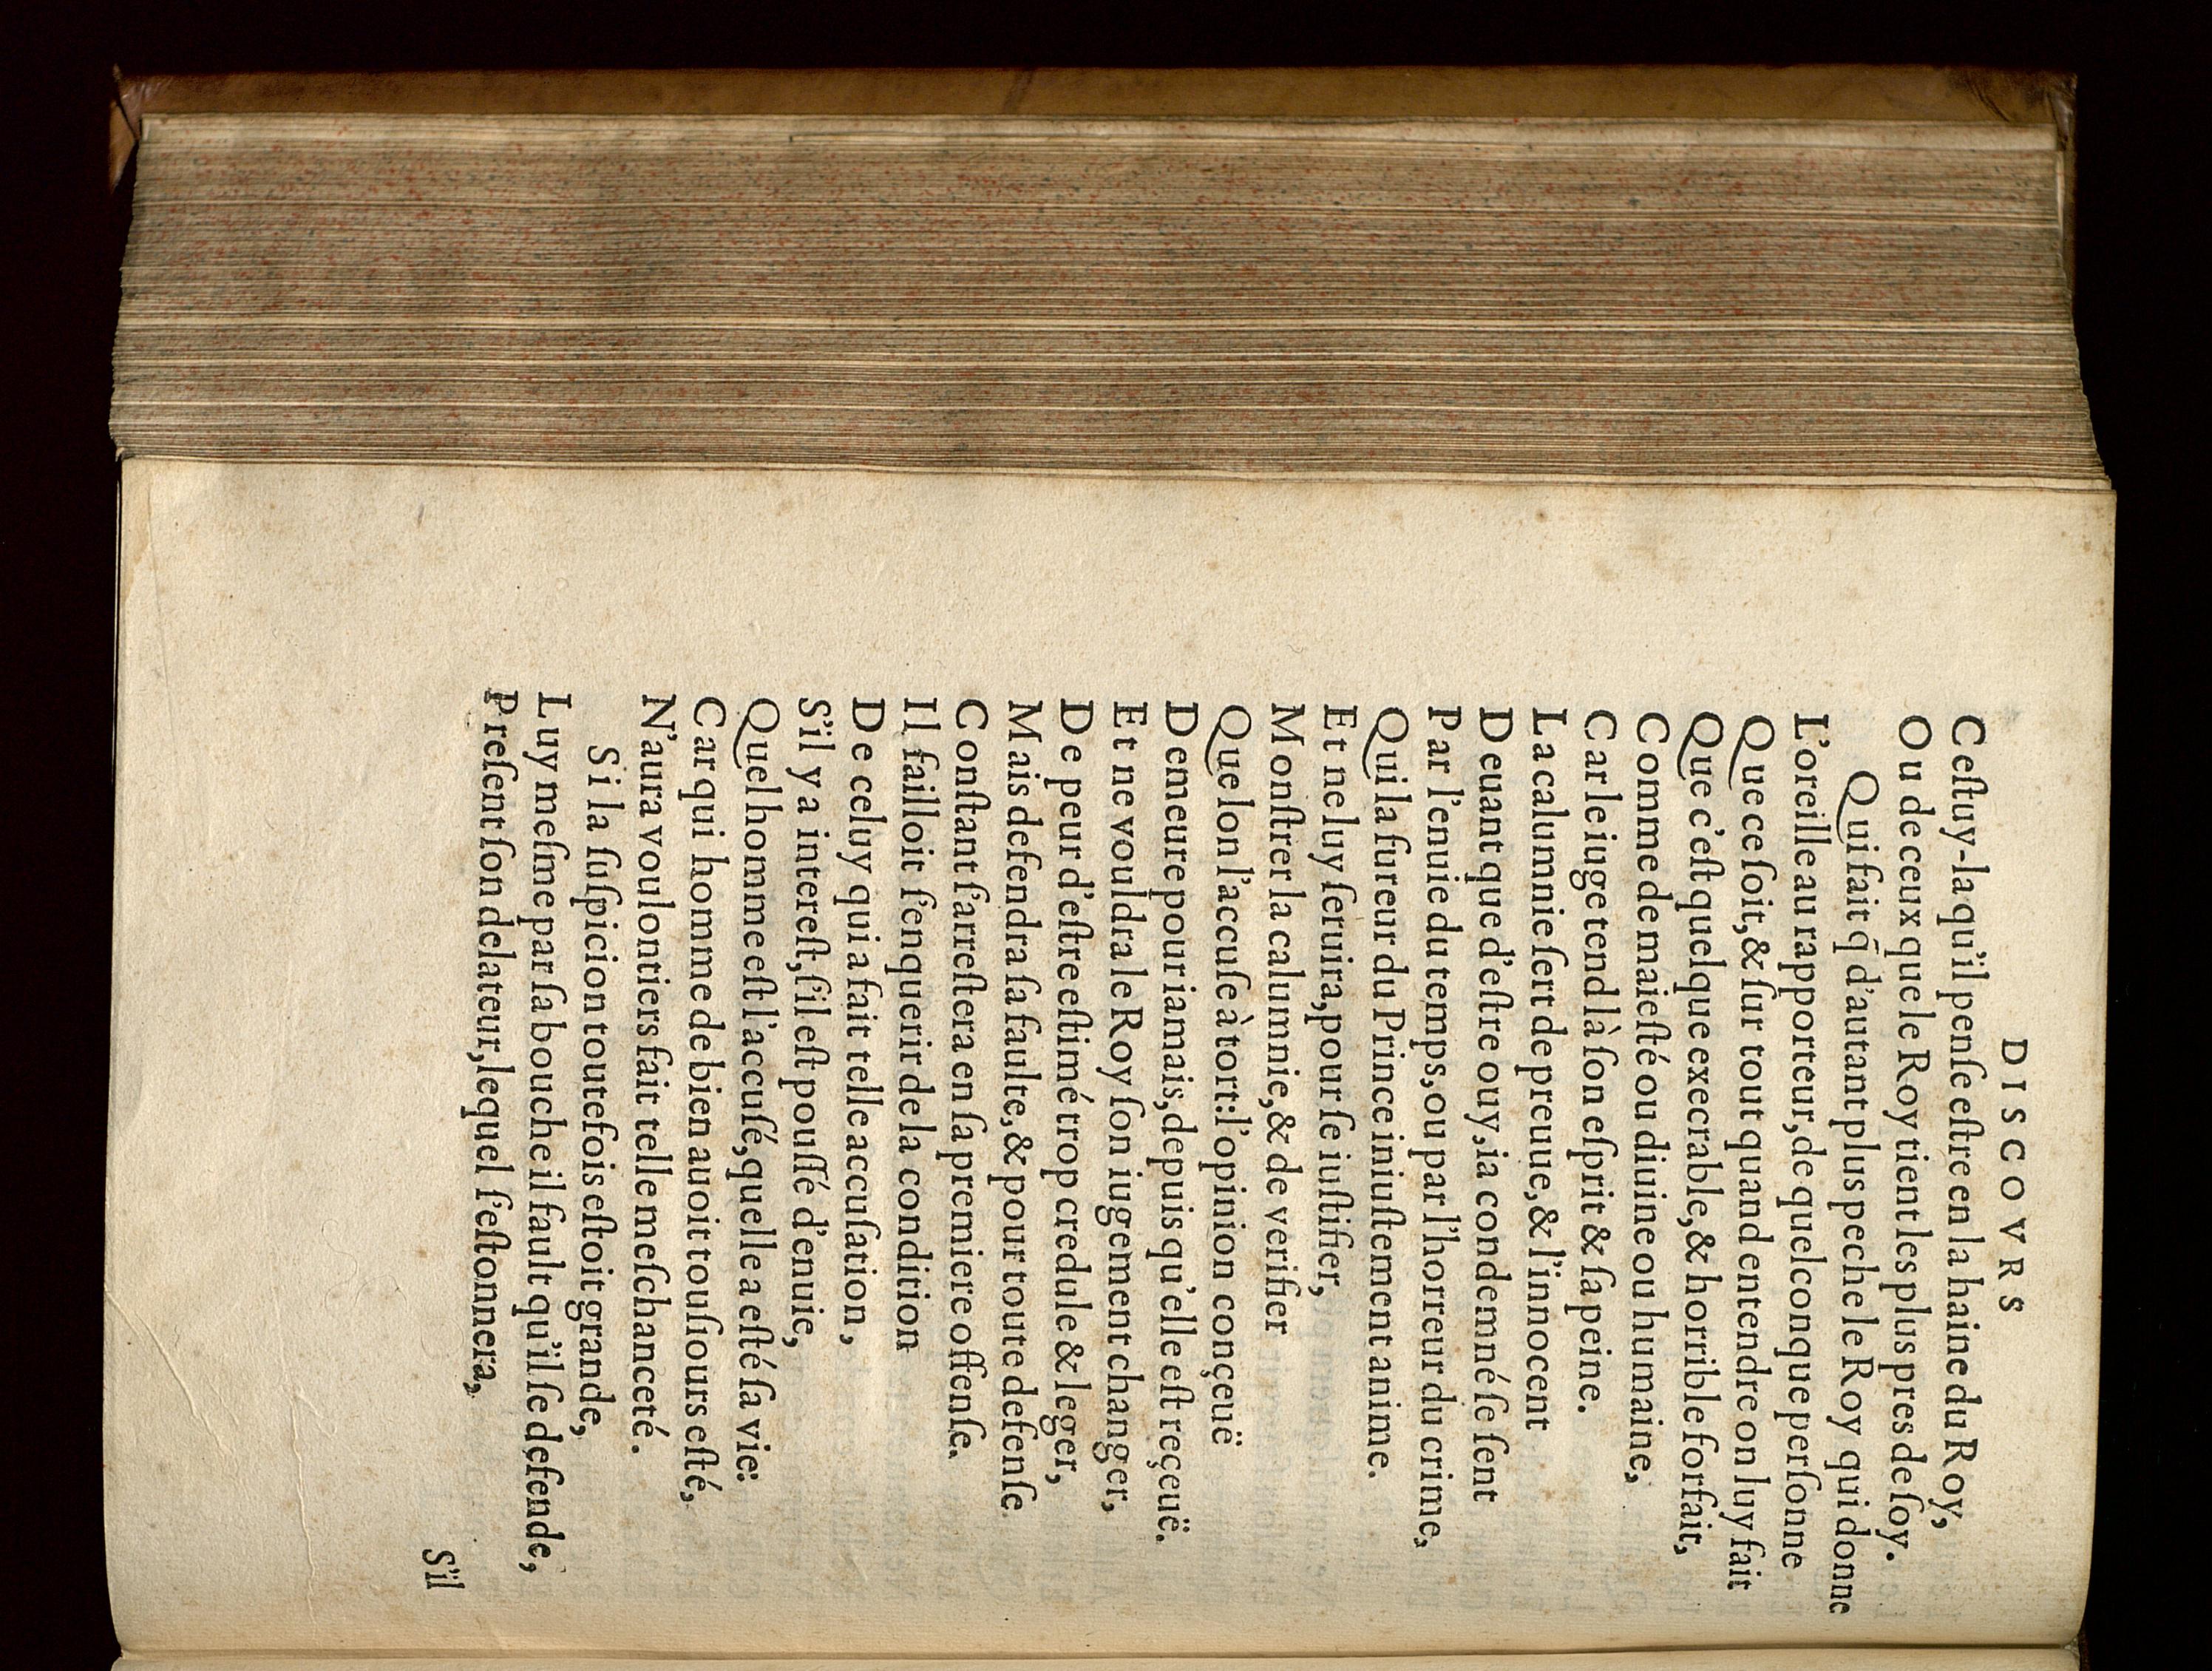 DISCOVRS
Ceſtuy-la qu'il penſe eſtre en la haine du Roy,
Ou de ceux que le Roy tient les plus pres de ſoy.
Qui fait q̃ d'autant plus peche le Roy qui donne
L'oreille au rapporteur, de quelconque perſonne
Que ce ſoit, & ſur tout quand entendre on luy fait
Que c'eſt quelque execrable, & horrible forfait,
Comme de maieſté ou diuine ou humaine,
Car le iuge tend là ſon eſprit & ſa peine.
La calumnie ſert de preuue, & l'innocent
Deuant que d'eſtre ouy, ia condemné ſe ſent
Par l'enuie du temps, ou par l'horreur du crime,
Qui la fureur du Prince iniuſtement anime.
Et ne luy ſeruira, pour ſe iuſtifier,
Monſtrer la calumnie, & de verifier
Que lon l'accuſe à tort: l'opinion conçeuë
Demeure pour iamais, depuis qu'elle eſt reçeuë.
Et ne vouldra le Roy ſon iugement changer,
De peur d'eſtre eſtimé trop credule & leger,
Mais defendra ſa faulte, & pour toute defenſe
Conſtant ſ'arreſtera en ſa premiere offenſe.
Il failloit ſ'enquerir de la condition
De celuy qui a fait telle accuſation,
S'il y a intereſt, ſ'il eſt pouſſé d'enuie,
Quel homme eſt l'accuſé, quelle a eſté ſa vie:
Car qui homme de bien auoit touſiours eſté,
N'aura voulontiers fait telle meſchanceté.
Si la ſuſpicion toutefois eſtoit grande,
Luy meſme par ſa bouche il fault qu'il ſe defende,
Preſent ſon delateur, lequel ſ'eſtonnera,
S'il